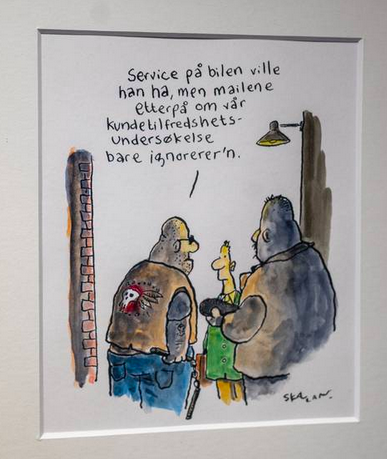 Service på bilen ville
han ha, men mailene
etterpå om vår
kundetilfredshets-
undersøkelse
bare ignorerer'n.